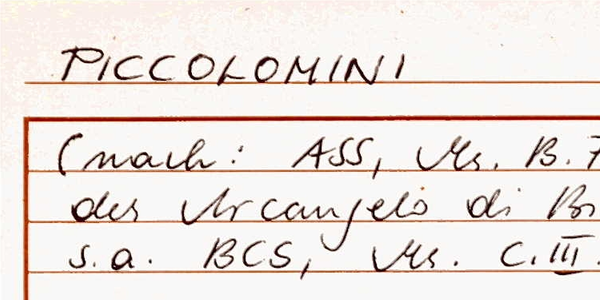 PICCOLOMINI
(nach: ASS, Ms. B.
des Arcangelo di
s.a. BCS, Ms. C.III.